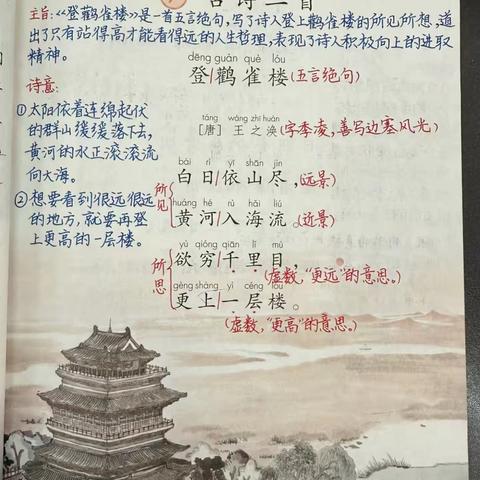 古诗二首
主旨:《登鹳雀楼》是一首五言绝句,写了诗人登上鹳雀楼的所见所想,道
出了只有站得高才能看得远的人生哲理,表现了诗人积极向上的进取
精神。
dēng guàn què lóu
登/鹳雀楼(五言绝句)
诗意:
①太阳依着连绵起伏
的群山缓缓落下去,
黄河的水正滚滚流
向大海。
②想要看到很远很远
的地方,就要再登
上更高的一层楼。
táng wáng zhī huàn
[唐] 王之涣(字季凌,善写边塞风光)
所见
bái rì yī shān jìn
白日/依山尽,(远景)
huáng hé rù hǎi liú
黄河/入海流。(近景)
所思
yù qióng qiān lǐ mù
欲穷/千里目,
(虚数,“更远”的意思。)
gèng shàng yì céng lóu
更上/一层楼。
(虚数,“更高”的意思。)